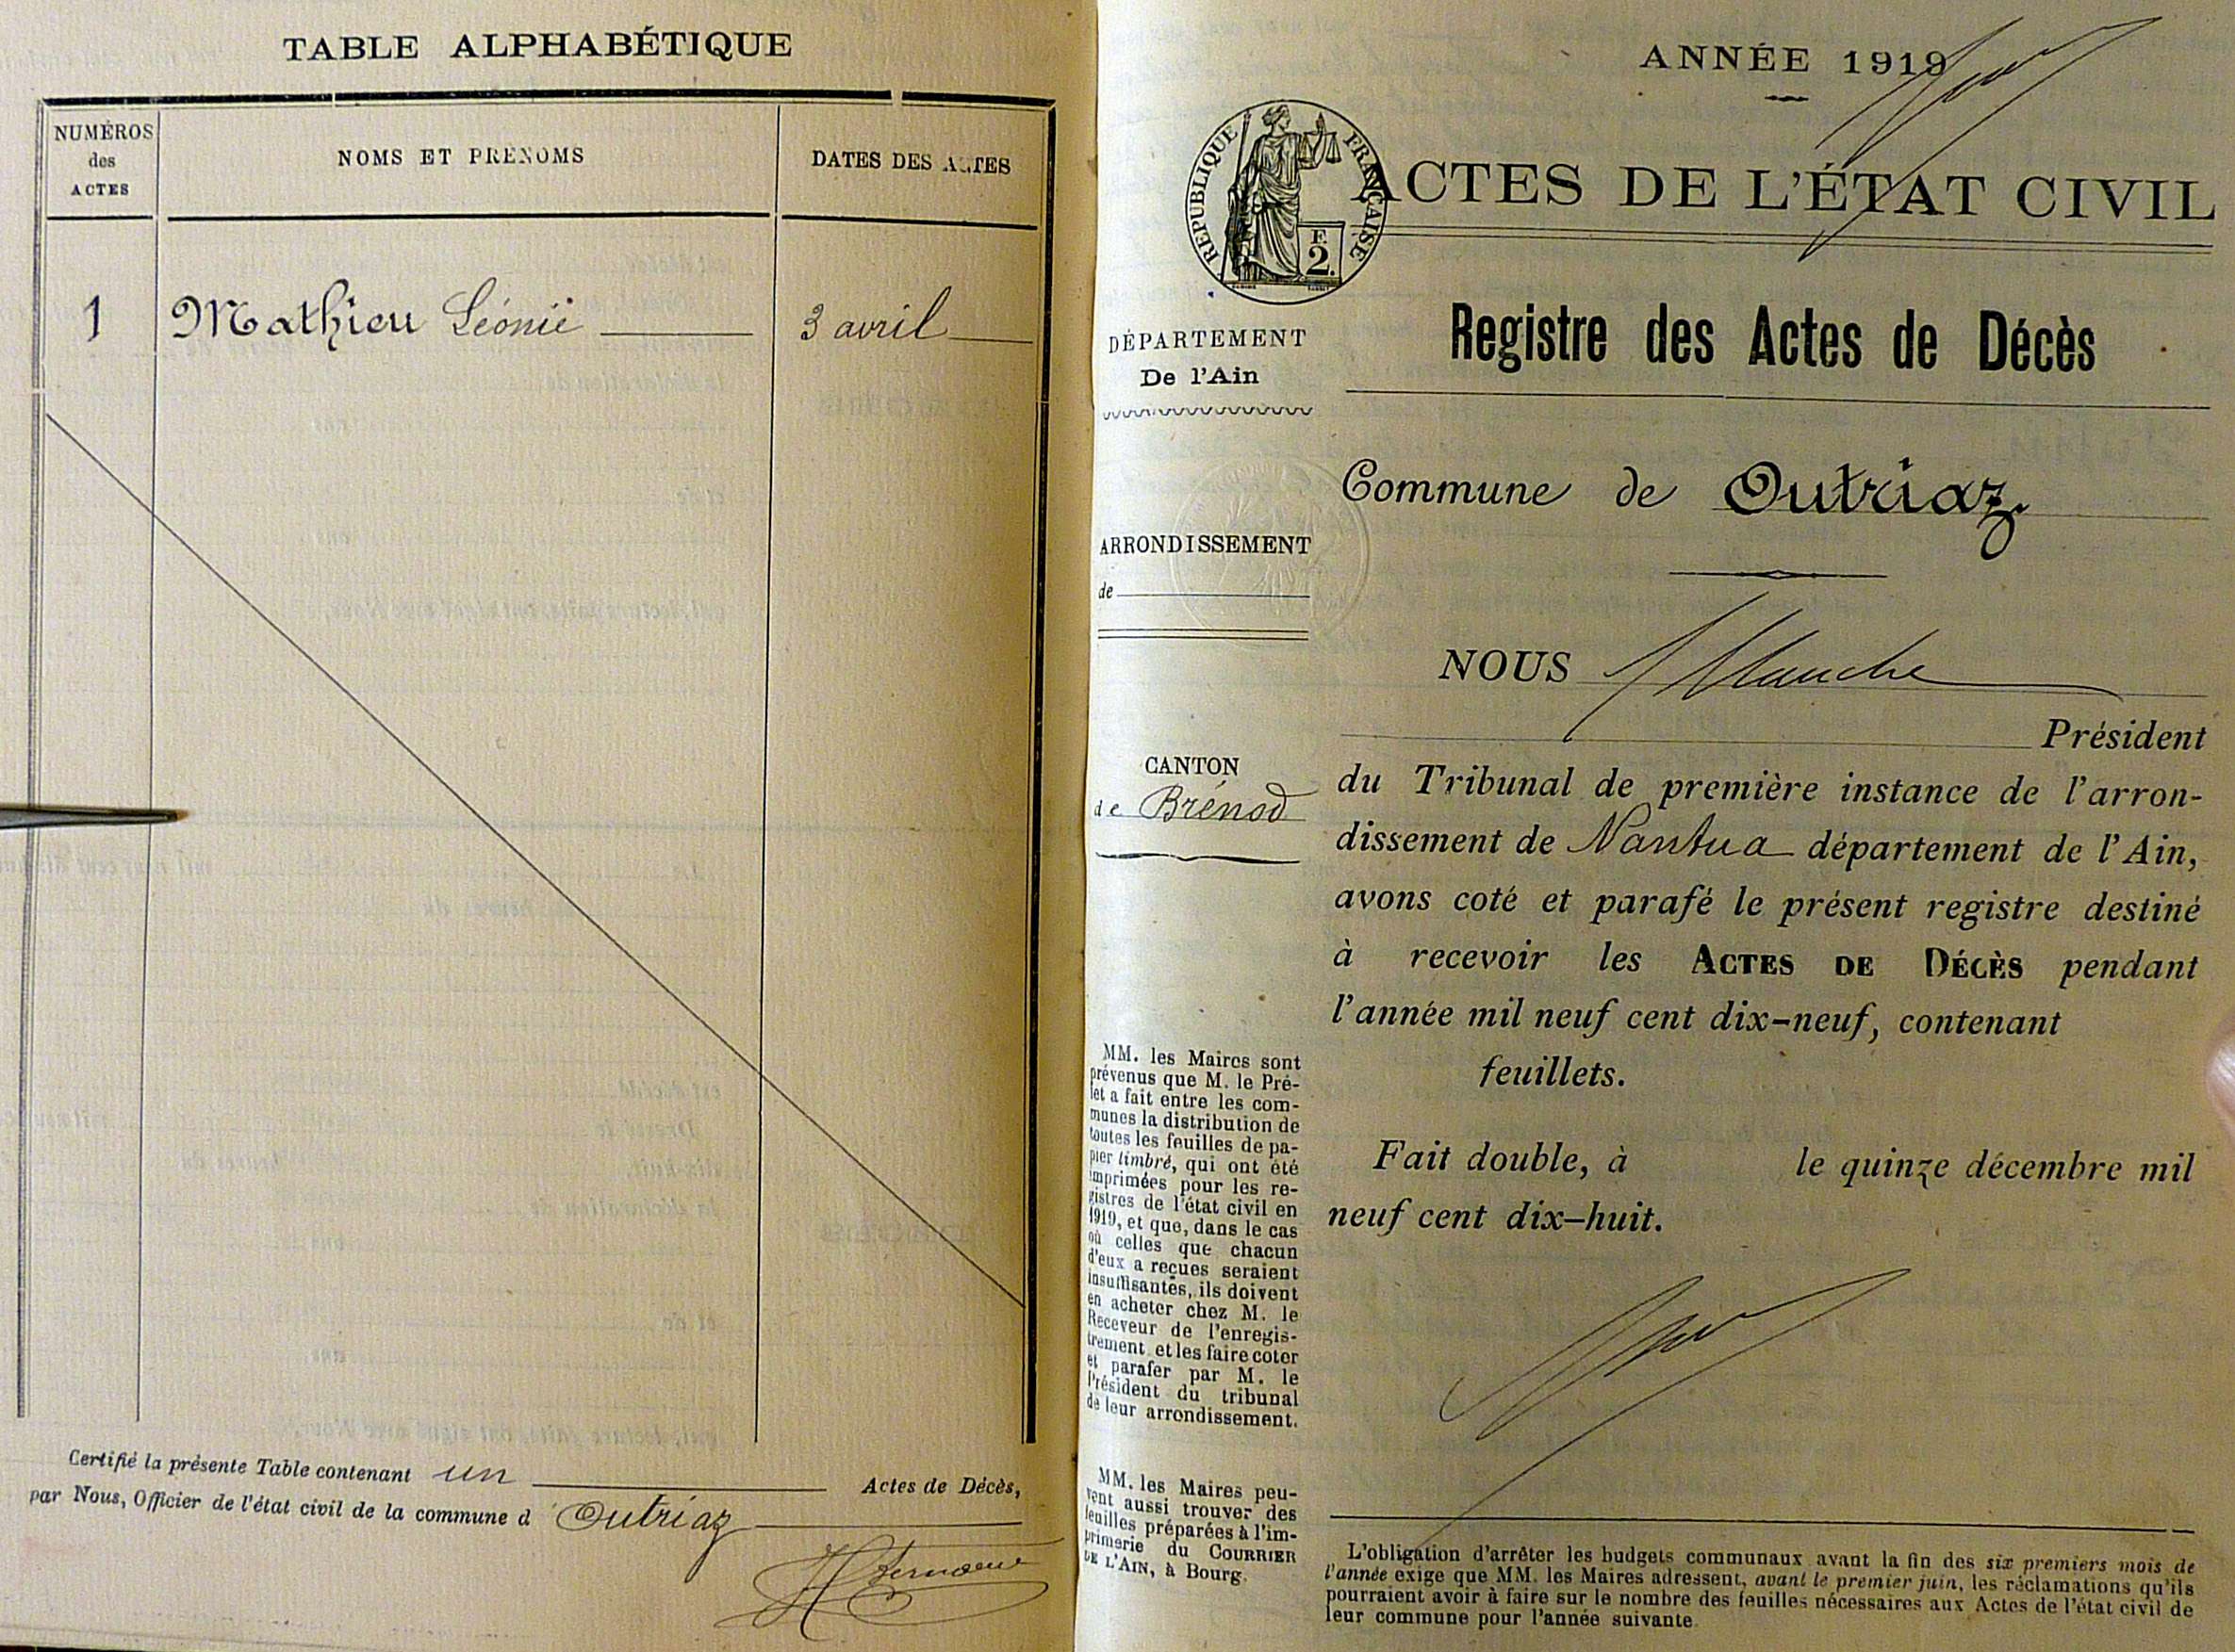 TABLE ALPHABÉTIQUE
NUMÉROS
des
ACTES
NOMS ET PRÉNOMS
DATES DES ACTES
1 Mathieu Léonie 3 avril
Certifié la présente Table contenant un Actes de Décès,
par Nous, Officier de l'état civil de la commune d'Outriaz
ANNÉE 1919
RÉPUBLIQUE FRANÇAISE
F.
2.
ACTES DE L'ÉTAT CIVIL
Registre des Actes de Décès
DÉPARTEMENT
De l'Ain
Commune de Outriaz
ARRONDISSEMENT
de
NOUS
Président
CANTON
de Brénod
du Tribunal de première instance de l'arron-
dissement de Nantua département de l'Ain,
avons coté et parafé le présent registre destiné
à recevoir les ACTES DE DÉCÈS pendant
l'année mil neuf cent dix-neuf, contenant
feuillets.
Fait double, à le quinze décembre mil
neuf cent dix-huit.
MM. les Maires sont
prévenus que M. le Pré-
fet a fait entre les com-
munes la distribution de
toutes les feuilles de pa-
pier timbré, qui ont été
imprimées pour les re-
gistres de l'état civil en
1919, et que, dans le cas
où celles que chacun
d'eux a reçues seraient
insuffisantes, ils doivent
en acheter chez M. le
Receveur de l'enregis-
trement et les faire coter
et parafer par M. le
Président du tribunal
de leur arrondissement.
MM. les Maires peu-
vent aussi trouver des
feuilles préparées à l'im-
primerie du COURRIER
DE L'AIN, à Bourg.
L'obligation d'arrêter les budgets communaux avant la fin des six premiers mois de
l'année exige que MM. les Maires adressent, avant le premier juin, les réclamations qu'ils
pourraient avoir à faire sur le nombre des feuilles nécessaires aux Actes de l'état civil de
leur commune pour l'année suivante.